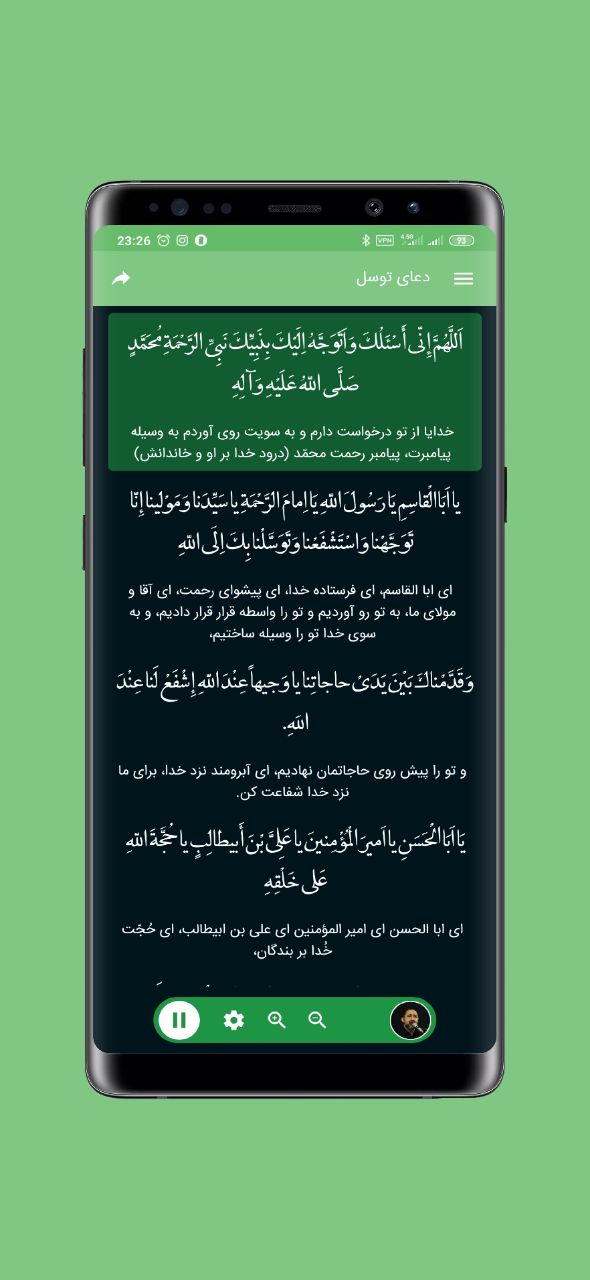 23:26
VPN
4.5G
93
دعای توسل
اَللّٰهُمَّ إِنِّی أَسْئَلُكَ وَ اَتَوَجَّهُ اِلَیْكَ بِنَبِیِّكَ نَبِیِّ الرَّحْمَةِ مُحَمَّدٍ
صَلَّی اللّٰهُ عَلَیْهِ وَ آلِهِ
خدایا از تو درخواست دارم و به سویت روی آوردم به وسیله
پیامبرت، پیامبر رحمت محمّد (درود خدا بر او و خاندانش)
یا اَبَا الْقاسِمِ یَا رَسُولَ اللّٰهِ یَا اِمامَ الرَّحْمَةِ یا سَیِّدَنا وَ مَوْلینا إِنّا
تَوَجَّهْنا وَ اسْتَشْفَعْنا وَ تَوَسَّلْنا بِكَ اِلَی اللّٰهِ
ای ابا القاسم، ای فرستاده خدا، ای پیشوای رحمت، ای آقا و
مولای ما، به تو رو آوردیم و تو را واسطه قرار قرار دادیم، و به
سوی خدا تو را وسیله ساختیم،
وَ قَدَّمْناكَ بَیْنَ یَدَیْ حاجاتِنا یا وَجیهاً عِنْدَ اللّٰهِ إِشْفَعْ لَنا عِنْدَ
اللّٰهِ.
و تو را پیش روی حاجاتمان نهادیم، ای آبرومند نزد خدا، برای ما
نزد خدا شفاعت کن.
یَا اَبَا الْحَسَنِ یا اَمیرَ الْمُؤْمِنینَ یا عَلِیَّ بْنَ أَبیطالِبٍ یا حُجَّةَ اللّٰهِ
عَلی خَلْقِهِ
ای ابا الحسن ای امیر المؤمنین ای علی بن ابیطالب، ای حُجّت
خُدا بر بندگان،